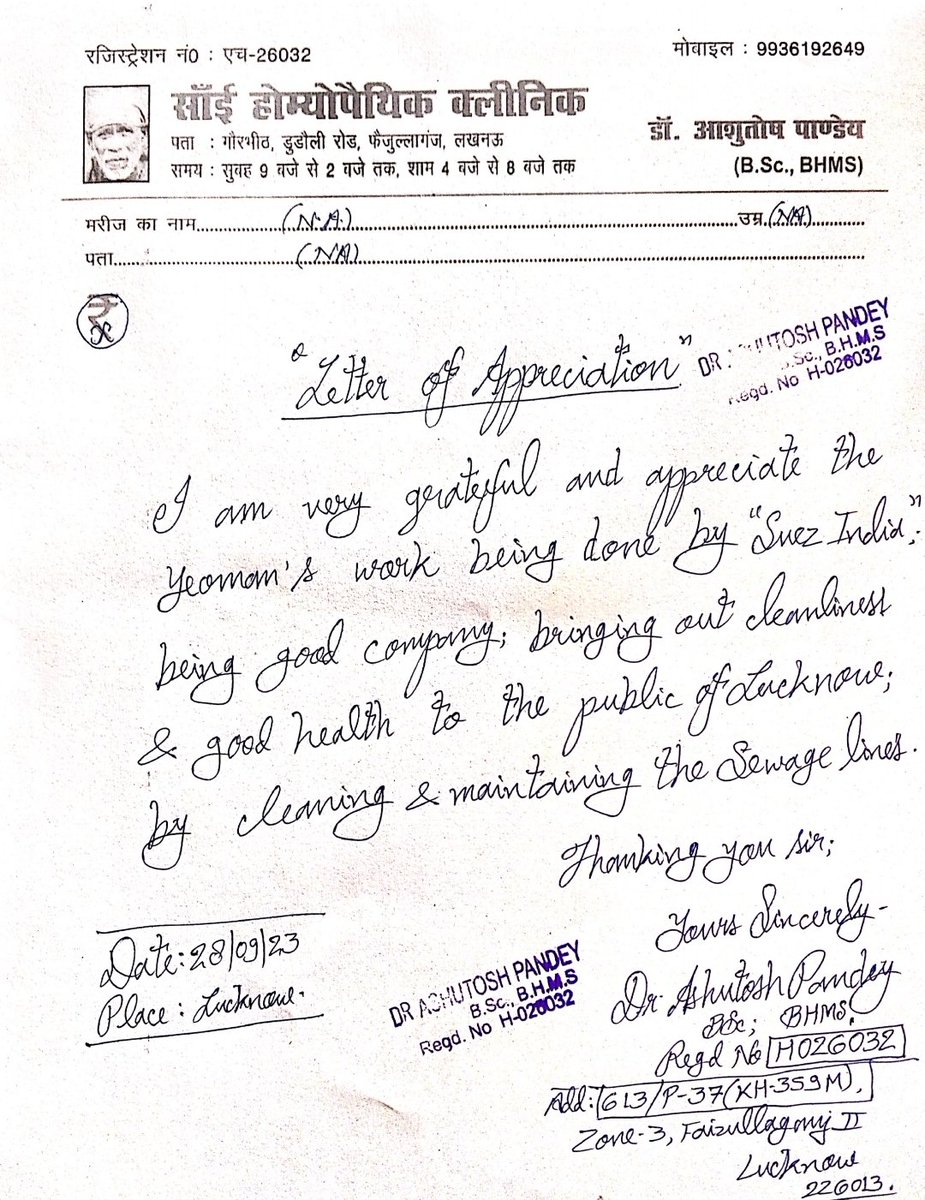 रजिस्ट्रेशन नं0 : एच-26032
मोबाइल : 9936192649
साँई होम्योपैथिक क्लीनिक
पता : गौरभीठ, डुडौली रोड, फैजुल्लागंज, लखनऊ
समय : सुबह 9 बजे से 2 बजे तक, शाम 4 बजे से 8 बजे तक
डॉ. आशुतोष पाण्डेय
(B.Sc., BHMS)
मरीज का नाम (N.A.) उम्र (NA)
पता (NA)
"Letter of Appreciation"
DR ASHUTOSH PANDEY
B.Sc., B.H.M.S
Regd. No H-026032
I am very grateful and appreciate the
Yeoman's work being done by "Suez India".
being good company; bringing out cleanliness
& good health to the public of Lucknow;
by cleaning & maintaining the Sewage lines.
Thanking you sir;
Yours Sincerely-
Dr Ashutosh Pandey
BSc; BHMS.
Regd No H026032
Add: 613/P-37(KH-359M),
Zone-3, Faizullaganj II
Lucknow
226013.
Date: 28/09/23
Place: Lucknow.
DR ASHUTOSH PANDEY
B.Sc., B.H.M.S
Regd. No H-026032